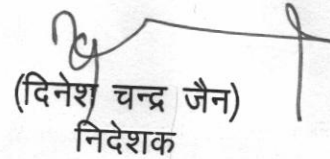 (दिनेश चन्द्र जैन)
निदेशक